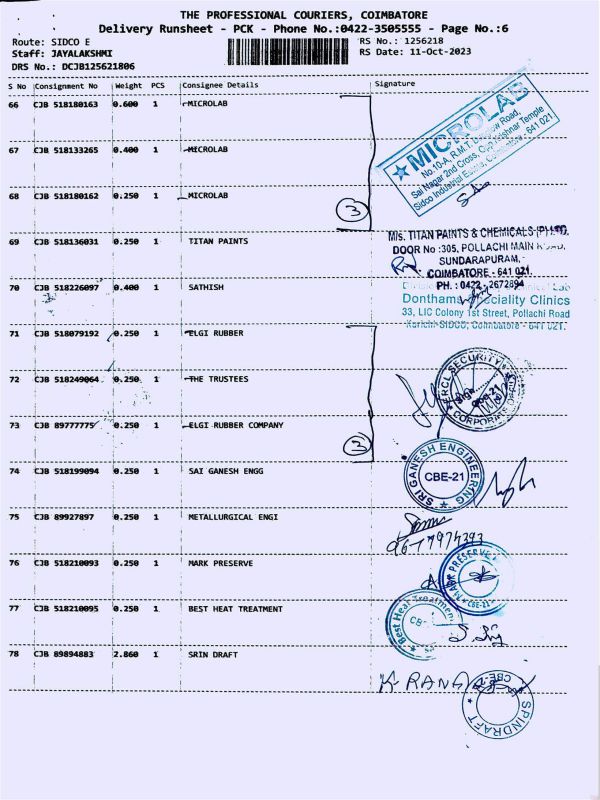 THE PROFESSIONAL COURIERS, COIMBATORE
Delivery Runsheet - PCK - Phone No.:0422-3505555 - Page No.:6
Route: SIDCO E
RS No.: 1256218
Staff: JAYALAKSHMI
RS Date: 11-Oct-2023
DRS No.: DCJB125621806
S No Consignment No Weight PCS Consignee Details Signature
66 CJB 518180163 0.600 1 MICROLAB
67 CJB 518133265 0.400 1 MECROLAB
68 CJB 518180162 0.250 1 MICROLAB
3
MICROLAB
No.10-A, R.M.T.
Sai Nagar 2nd Cross,
Temple
Sidco Industrial Estate, Coimbatore - 641 021.
69 CJB 518136031 0.250 1 TITAN PAINTS
M/s. TITAN PAINTS & CHEMICALS (P) LTD,
DOOR No :305, POLLACHI MAIN ROAD,
SUNDARAPURAM,
COIMBATORE - 641 021.
PH. : 0422 - 2672894
70 CJB 518226097 0.400 1 SATHISH
Donthams Speciality Clinics
33, LIC Colony 1st Street, Pollachi Road
Kurichi SIDCO, Coimbatore - 641 021.
71 CJB 518079192 0.250 1 ELGI RUBBER
72 CJB 518249064 0.250 1 THE TRUSTEES
73 CJB 89777775 0.250 1 ELGI RUBBER COMPANY
3
SECURITY
Sign
CORPORATE OFFICE
74 CJB 518199094 0.250 1 SAI GANESH ENGG
SRI GANESH ENGINEERING
CBE-21
75 CJB 89927897 0.250 1 METALLURGICAL ENGI
76 CJB 518210093 0.250 1 MARK PRESERVE
PRESERVE
CBE-21
77 CJB 518210095 0.250 1 BEST HEAT TREATMENT
Best Heat Treatment
78 CJB 89894883 2.860 1 SRIN DRAFT
K. RANG
CBE-21
SPINDRAFT